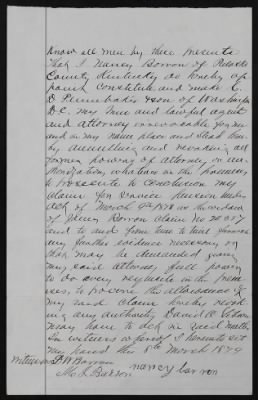 Know all men by these presents
that I Nancy Barron of Pulaski
County Kentucky do hereby ap
point constitute and make C.
D Pennebaker of Washington
D.C. my true and lawful agent
and attorney irrevocable for me
and in my name place and stead here
by annulling and revoking all
former powers of attorney or au
thorization whatever in the premises
to prosecute to conclusion my
claim for
act of March 9th 1878 as the widow
of James Barron claim no
and to and from time to time furnish
any further evidence necessary or
that may be demanded giving
my said attorney full power
to do every in the prem
ises, to procure the allowance of
my said claim hereby revok
ing any authority David
may have to act in said matter
In witness whereof I hereunto set
my hand this 8th March 1879
Witnesses
nancy barron